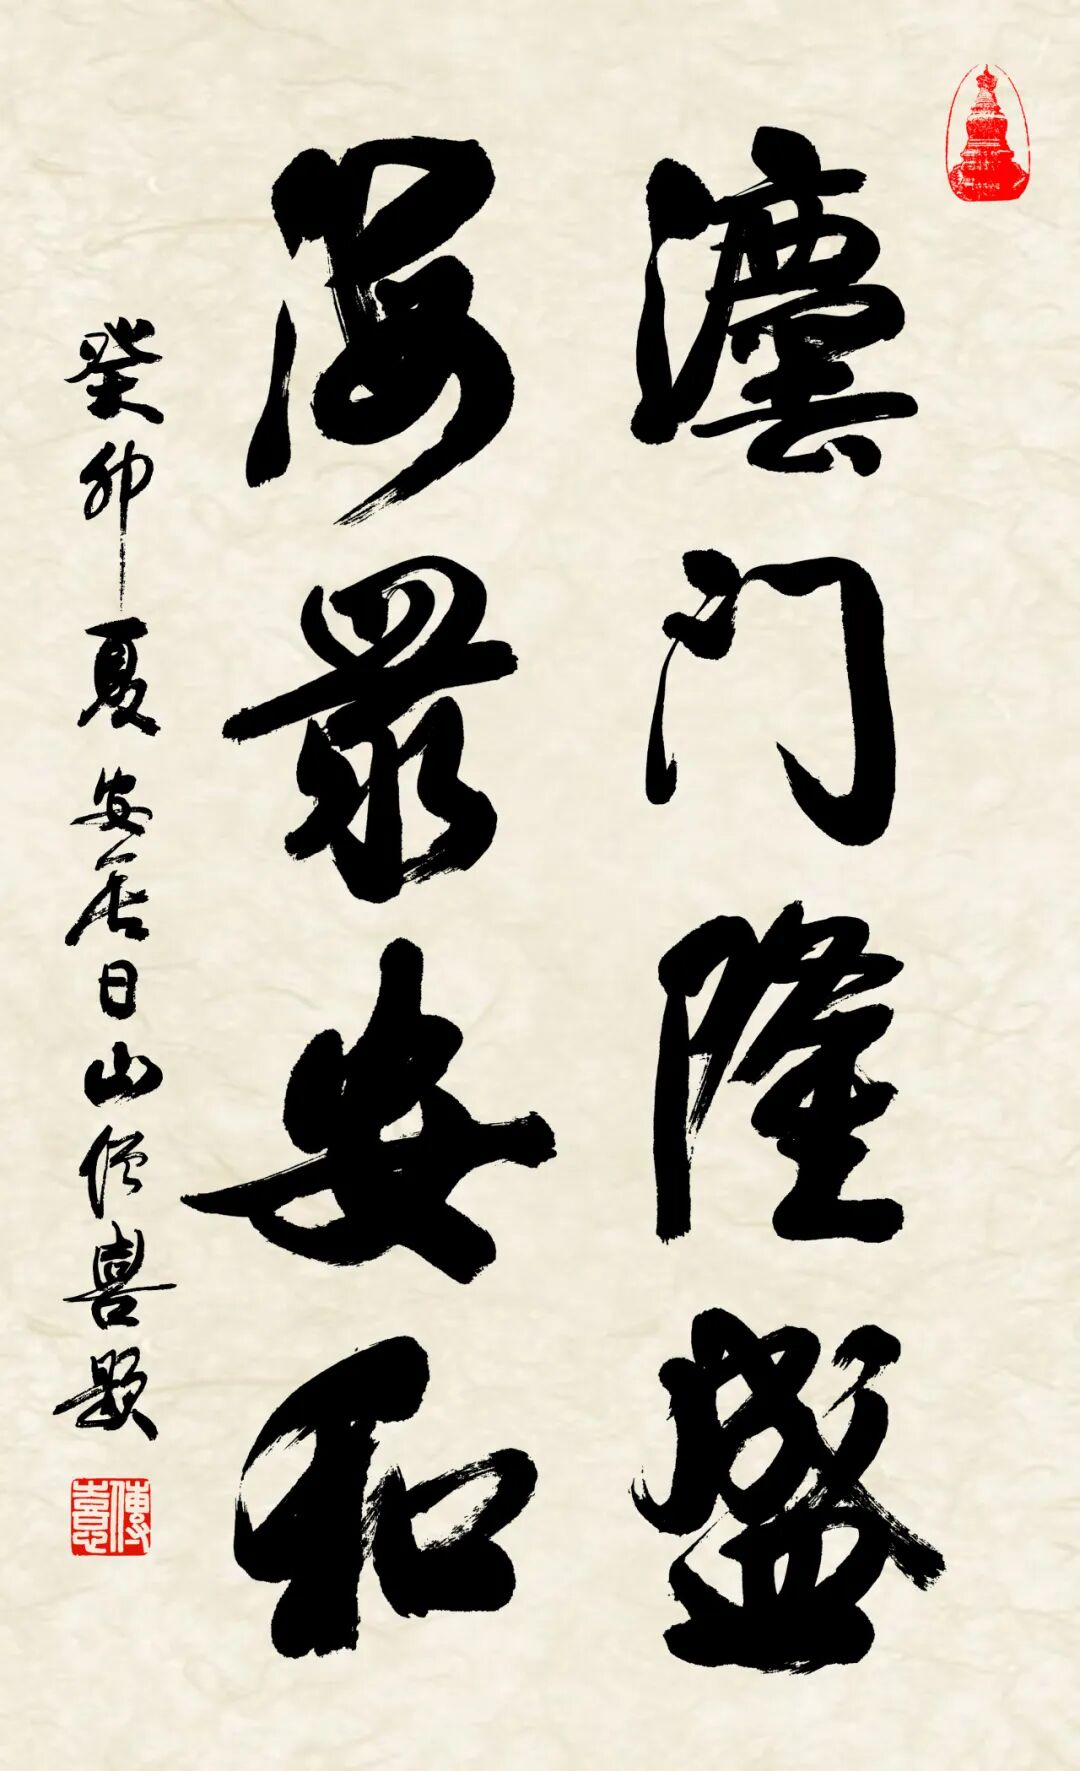 灋门隆盛
海眾安和
癸卯夏安居日山僧喜題
傳憙